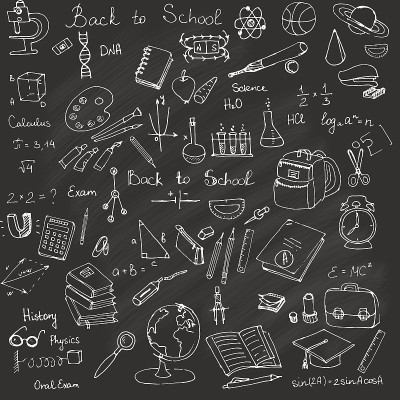 Back to School
DNA
N S
Science
H₂O
1/2 × 1/3
HCl
logₐaⁿ=n
B
A D
Calculus
π = 3,14
√4
2 × 2 = ?
Exam
Back to School
+ -
a + B = c
A
E = MC²
History
Physics
Oral Exam
sin(2A) = 2sinAcosA